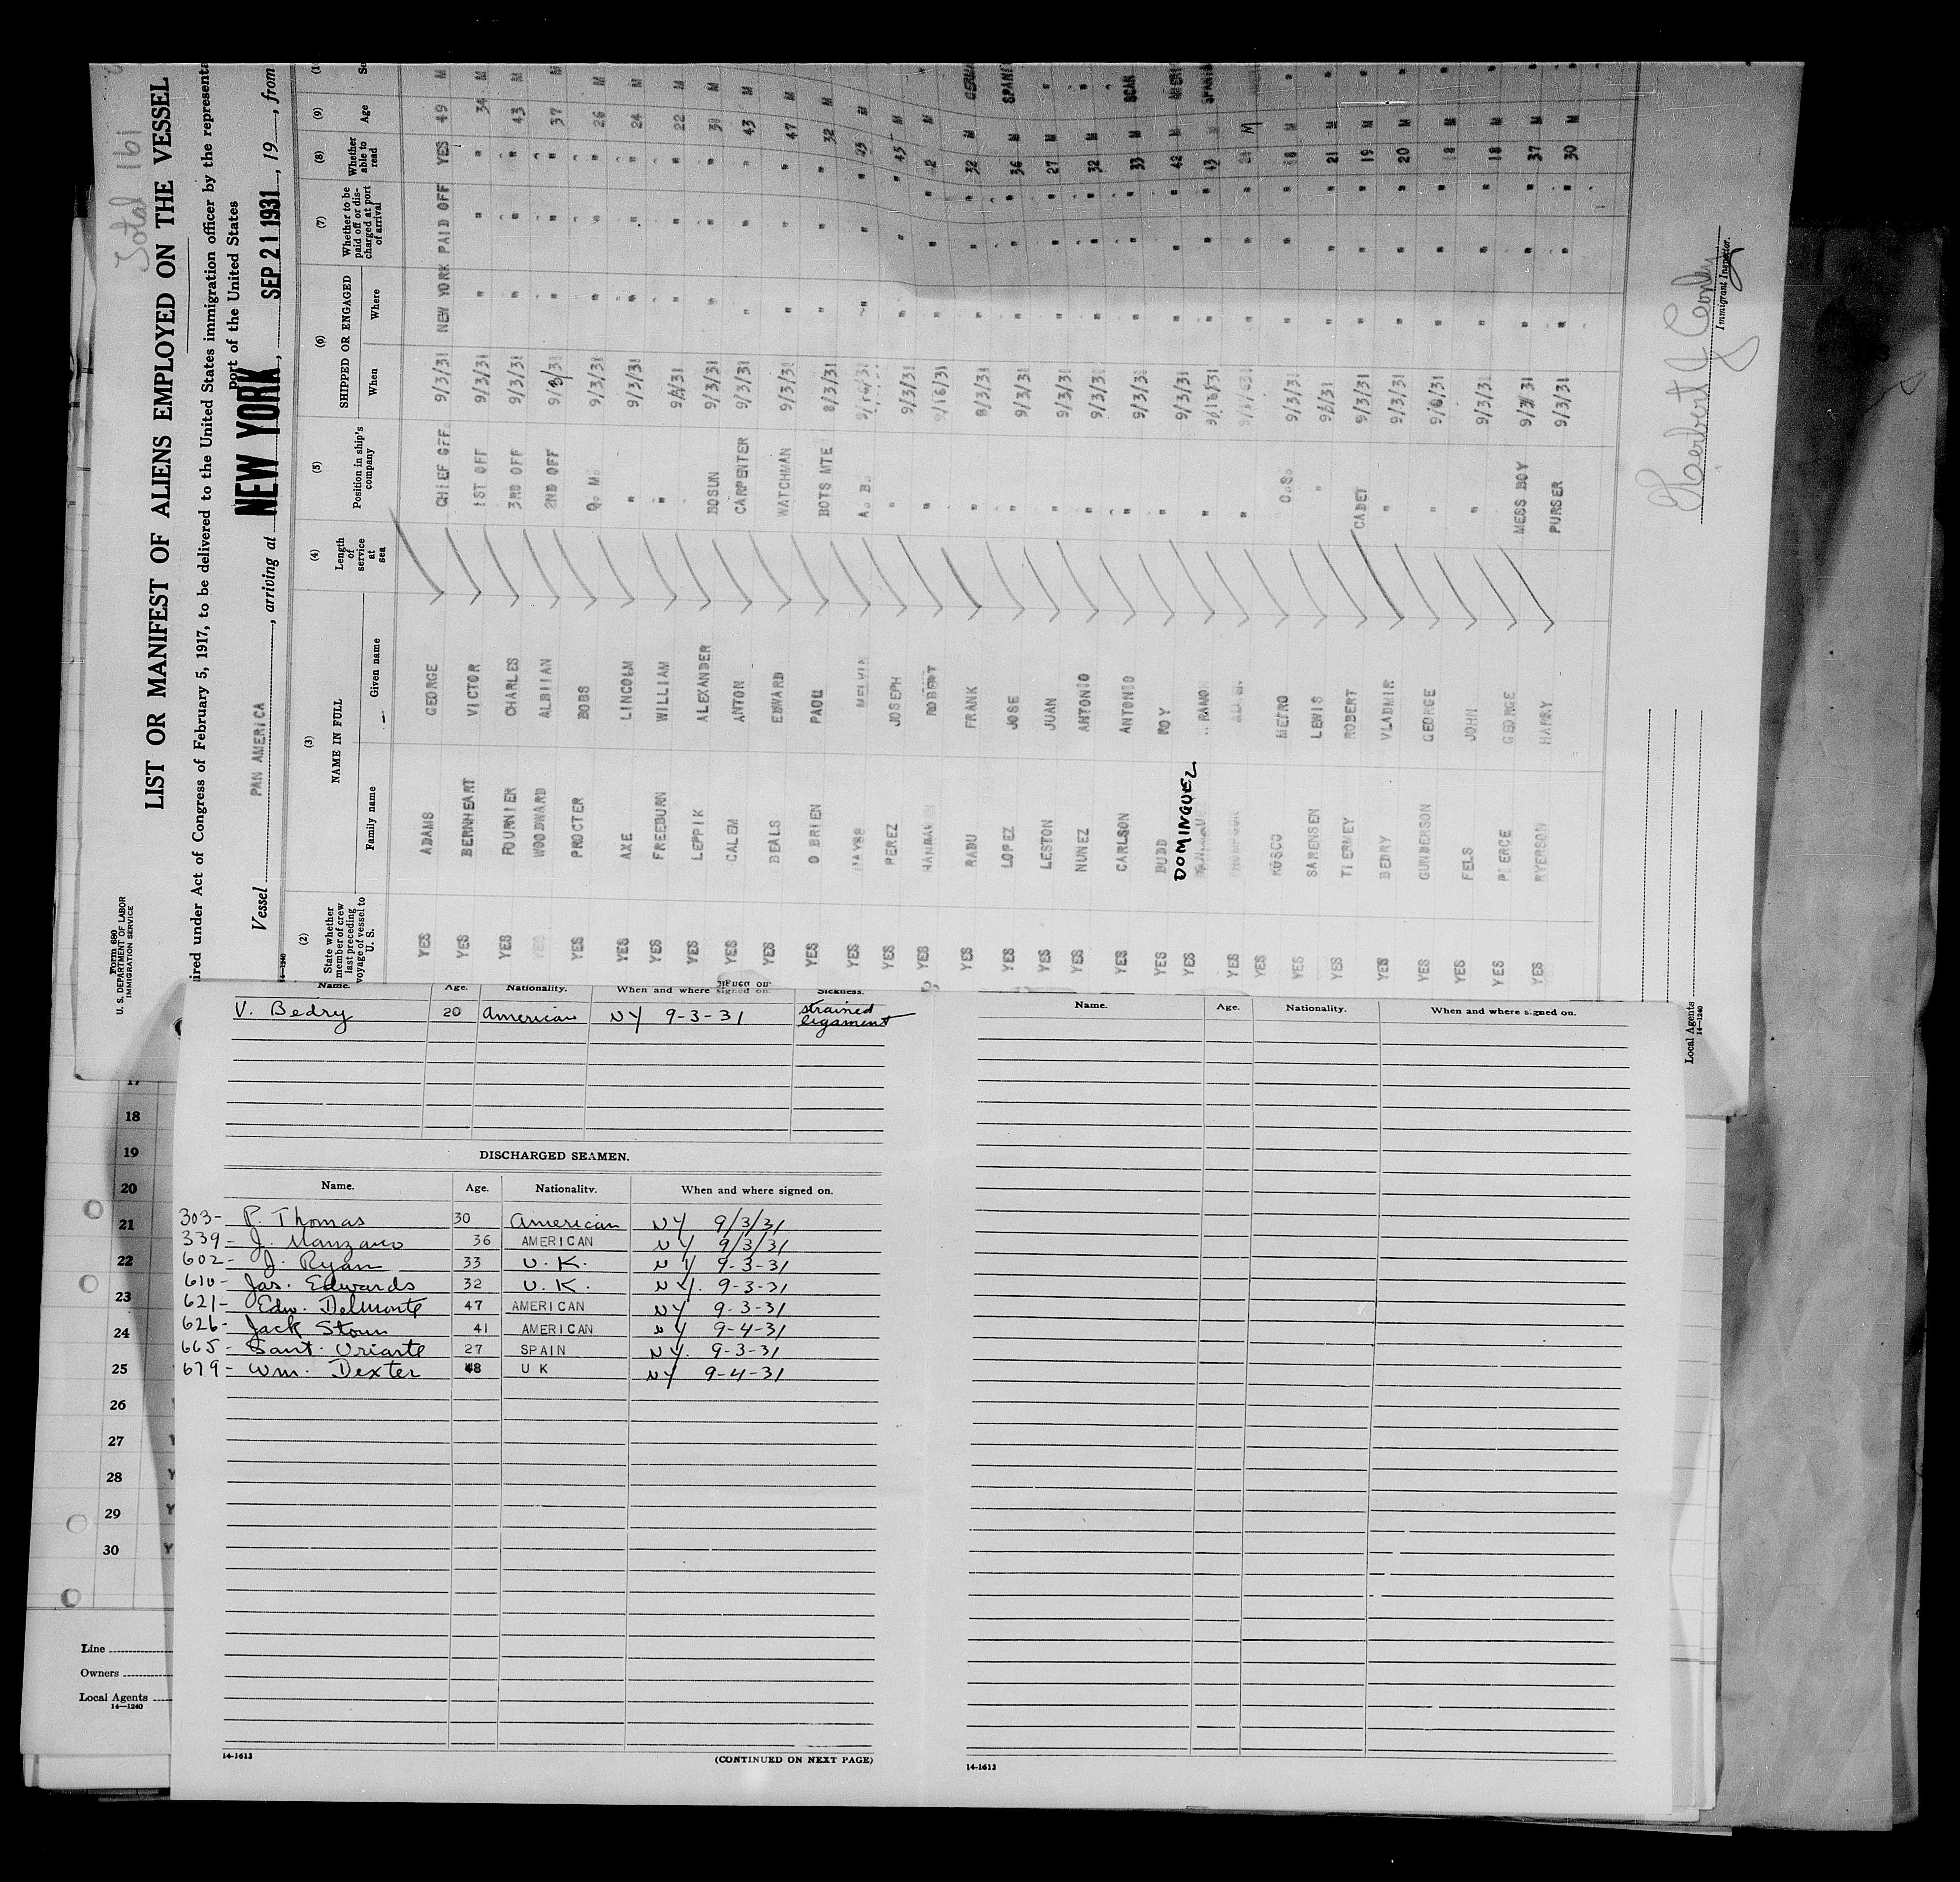 Total 161
Form 680
U. S. DEPARTMENT OF LABOR
IMMIGRATION SERVICE
LIST OR MANIFEST OF ALIENS EMPLOYED ON THE VESSEL
ired under Act of Congress of February 5, 1917, to be delivered to the United States immigration officer by the representa
port of the United States
Vessel PAN AMERICA, arriving at NEW YORK, SEP 21 1931, 19 , from
14-1240
(2) (3) (4) (5) (6) (7) (8) (9)
State whether member of crew last preceding voyage of vessel to U. S. NAME IN FULL Family name Given name Length of service at sea Position in ship's company SHIPPED OR ENGAGED When Where Whether to be paid off or discharged at port of arrival Whether able to read Age
YES ADAMS GEORGE CHIEF OFF. 9/3/31 NEW YORK PAID OFF YES 49 M
YES BERNHEART VICTOR 1ST OFF 9/3/31 " " " 34 M
YES FOURNIER CHARLES 3RD OFF 9/3/31 " " " 43 M
YES WOODWARD 2ND OFF 9/3/31 " " " 37 M
YES PROCTER BOBS Q. M. 9/3/31 " " " 26 M
YES AXE LINCOLM " 9/3/31 " " " 24 M
YES FREEBURN WILLIAM " " " " 22 M
YES LEPPIK ALEXANDER BOSUN 9/3/31 " " " M
YES CALEM ANTON CARPENTER 9/3/31 " " " 43 M
YES BEALS EDWARD WATCHMAN 9/3/31 " " " 47 M
YES O BRIEN PAOU BOTS MTE 8/3/31 " " " 32 M
YES HAYSS MELVIN A. B. " " " M
YES PEREZ JOSEPH " 9/3/31 " " " 45 M
YES ROBERT " 9/16/31 " " " M
YES RADU FRANK " 9/3/31 " " " 32 M GERMA
YES LOPEZ JOSE " 9/3/31 " " " 36 M SPANI
YES LESTON JUAN " 9/3/31 " " " 27 M "
YES NUNEZ ANTONIO " 9/3/31 " " " 32 M "
YES CARLSON ANTONIO " 9/3/31 " " " 33 M SCAN
YES BUDD ROY " 9/3/31 " " " 42 M AMERI
YES DOMINGUEZ RAMON " 9/16/31 " " " 43 M SPANIS
YES " " " " M
YES KOSCO METRO O.S. 9/3/31 " " " 18 M "
YES SARENSEN LEWIS " " " " 21 M "
YES TIERNEY ROBERT CADET 9/3/31 " " " 19 M "
YES BEDRY VLADMIR " 9/3/31 " " " 20 M "
YES GUNDERSON GEORGE " " " " 18 M "
YES FELS JOHN " 9/3/31 " " " 18 M "
YES PIERCE GEORGE MESS BOY 9/3/31 " " " 37 M "
YES RYERSON HARRY PURSER 9/3/31 " " " 30 M "
Immigrant Inspector.
Local Agents
14-1240
Name. Age. Nationality. When and where signed on. Sickness.
V. Bedry 20 American NY 9-3-31 Strained ligament
DISCHARGED SEAMEN.
Name. Age. Nationality. When and where signed on.
303- P. Thomas 30 American NY 9/3/31
339- J. Manzano 36 AMERICAN NY 9/3/31
602- J. Ryan 33 U.K. NY 9-3-31
610- Jas. Edwards 32 U.K. NY. 9-3-31
621- Edw. Delmonte 47 AMERICAN NY 9-3-31
626- Jack Stoun 41 AMERICAN NY 9-4-31
665- Sant. Uriarte 27 SPAIN NY. 9-3-31
679- Wm. Dexter 48 U K NY 9-4-31
14-1613
(CONTINUED ON NEXT PAGE)
Name. Age. Nationality. When and where signed on.
14-1613
17
18
19
20
21
22
23
24
25
26
27
28
29
30
Line
Owners
Local Agents
14-1240